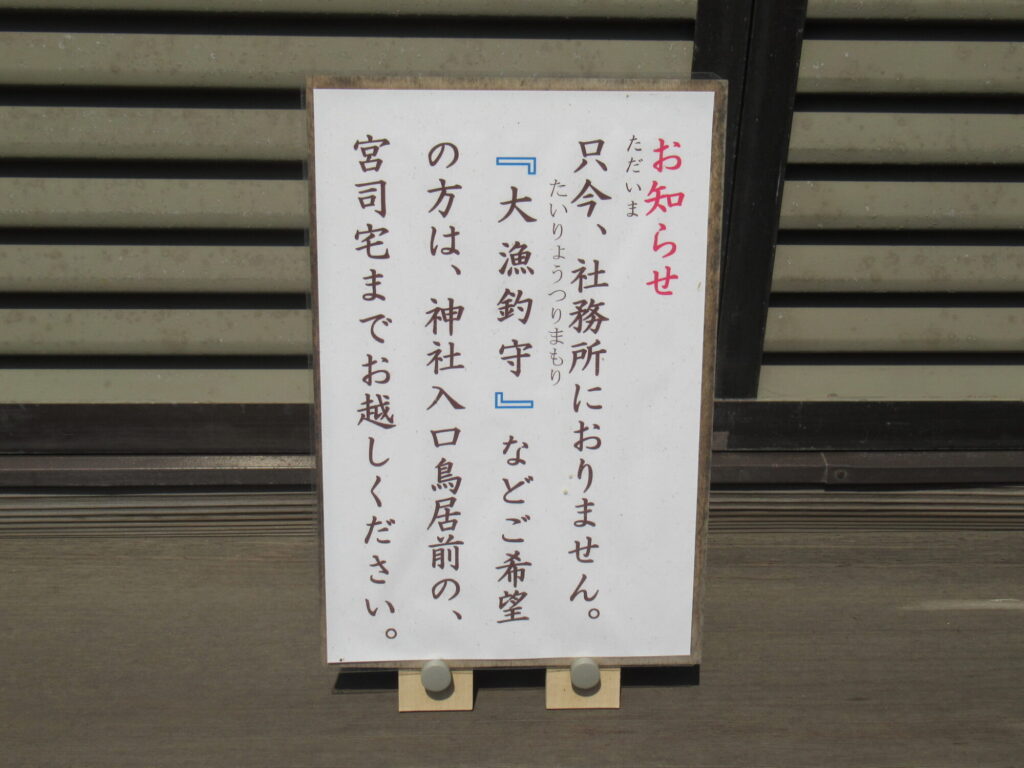 お知らせ
ただいま
只今、社務所におりません。
たいりょうつりまもり
『大漁釣守』などご希望
の方は、神社入口鳥居前の、
宮司宅までお越しください。